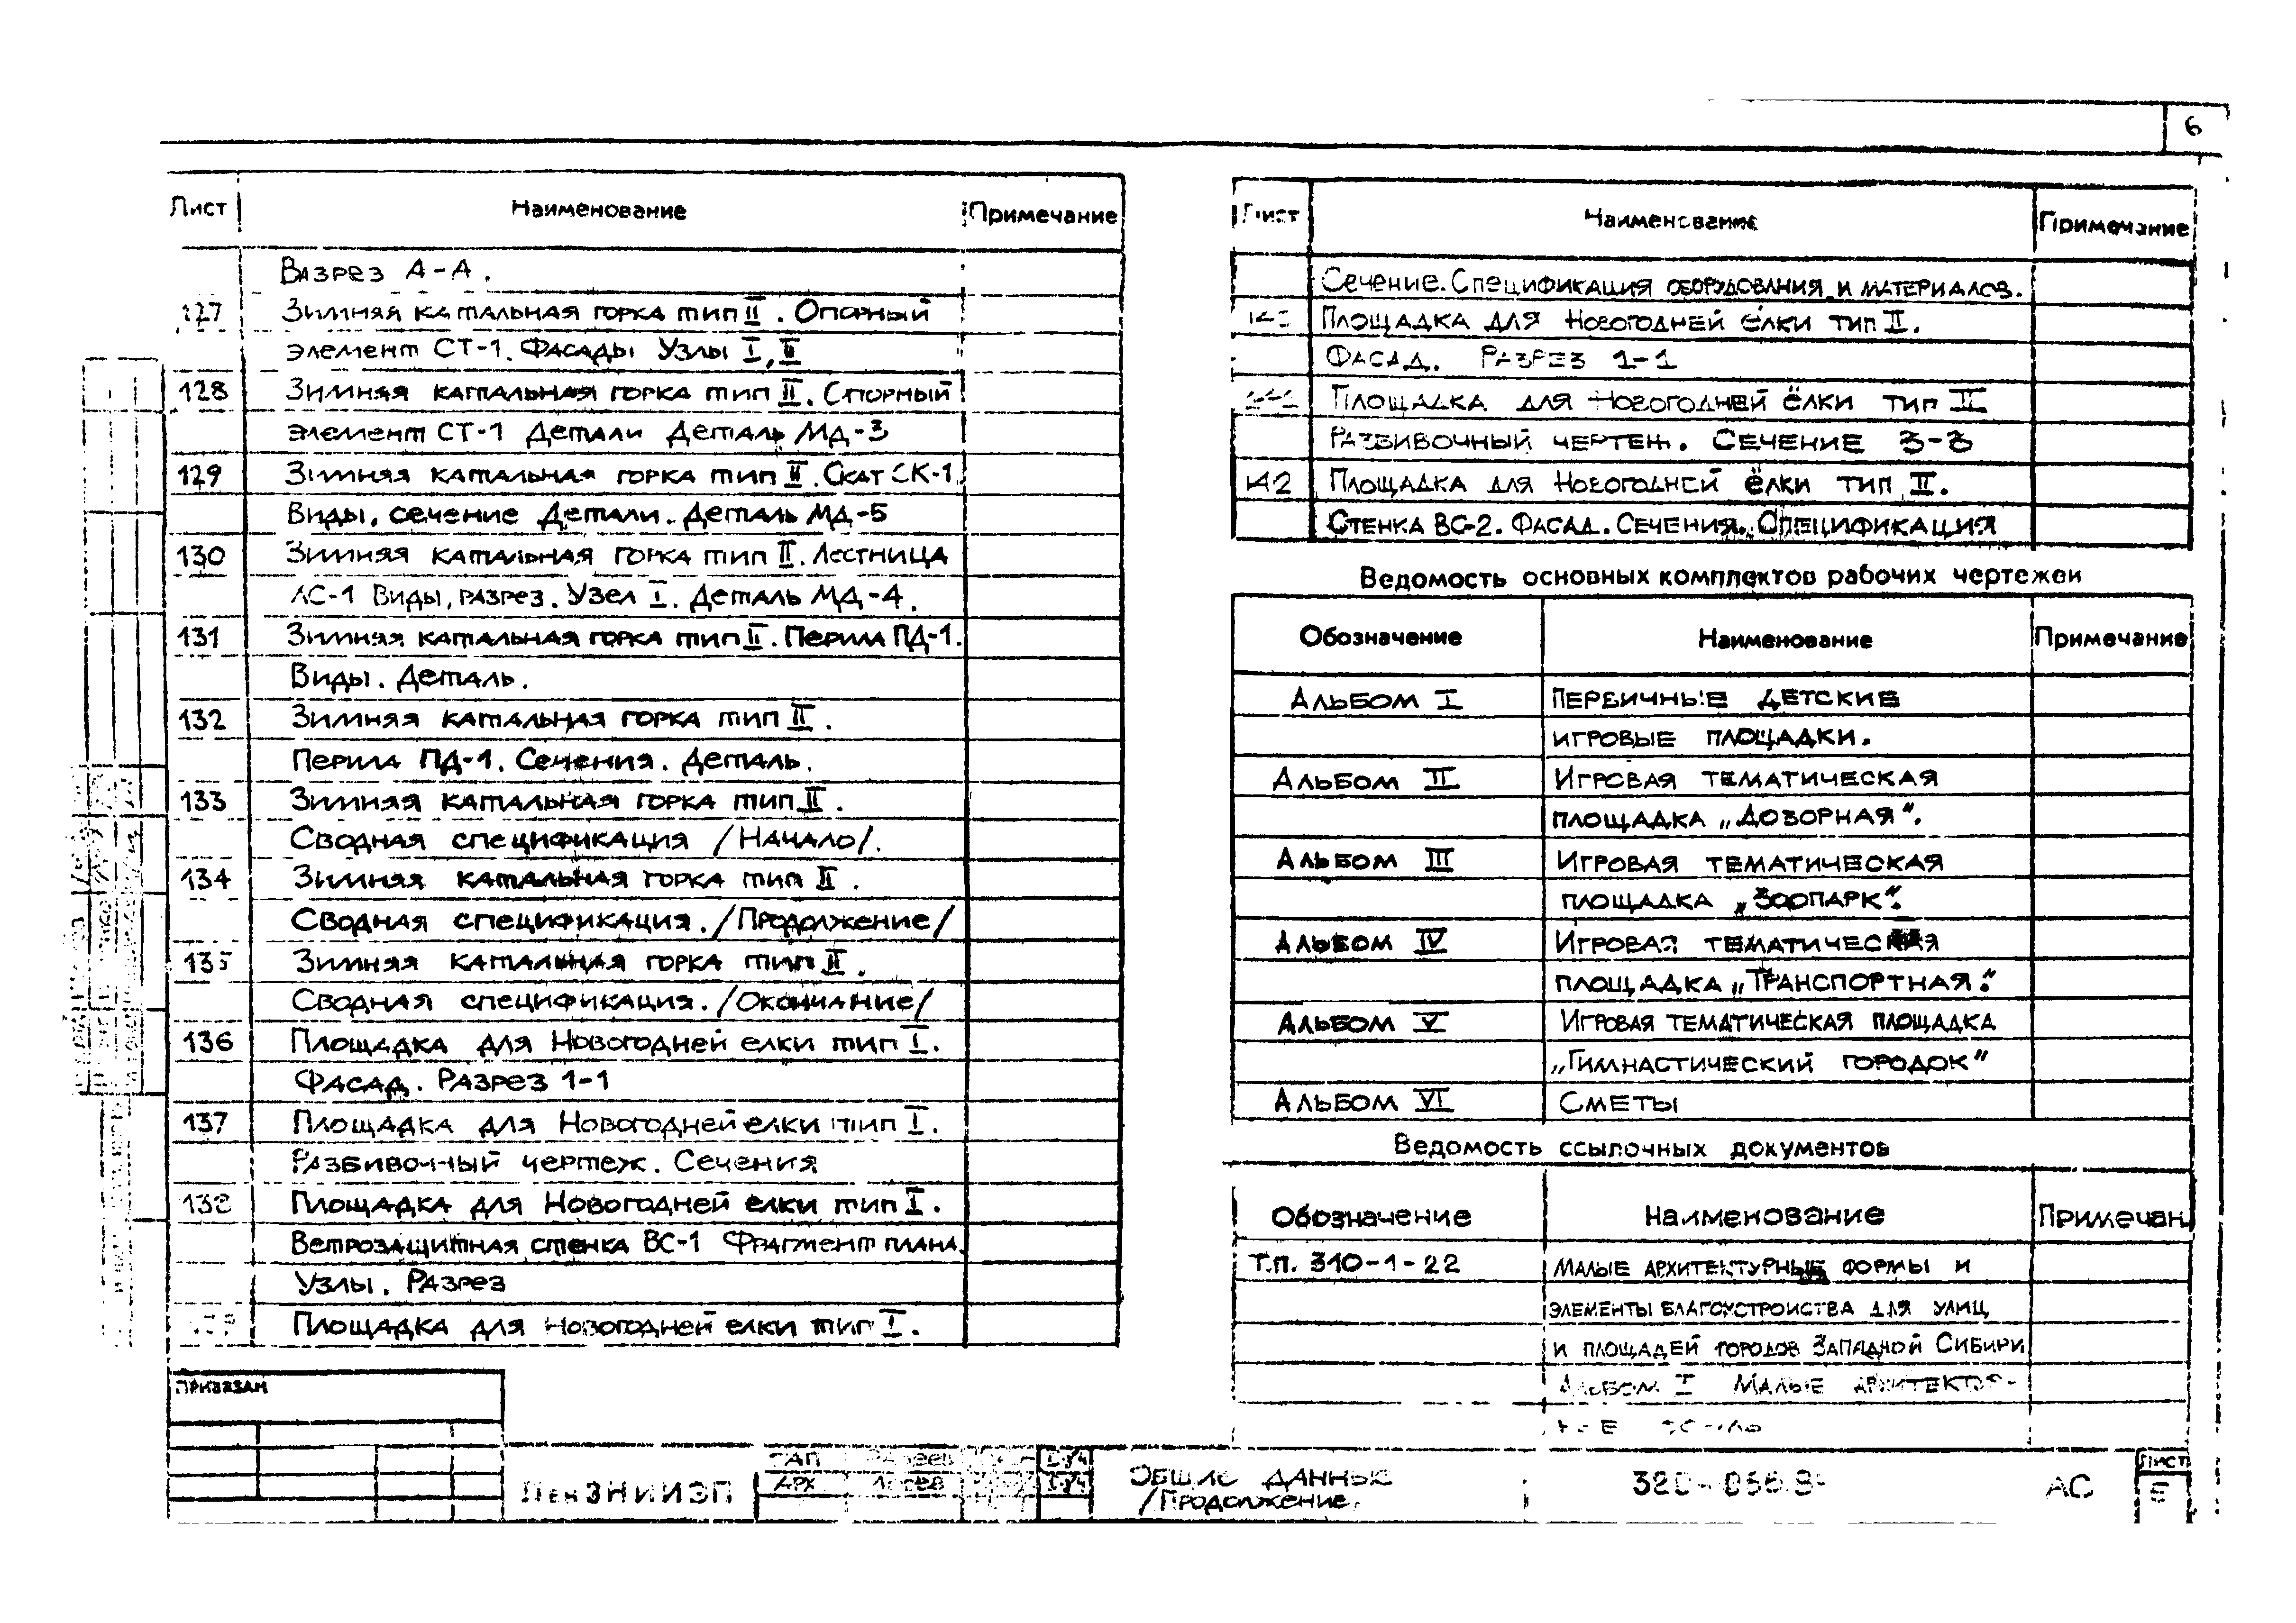 6
Лист Наименование Примечание
Вазрез А-А.
127 Зимняя катальная горка тип II. Опорный
элемент СТ-1. Фасады Узлы I, II
128 Зимняя катальная горка тип II. Спорный
элемент СТ-1 Детали Деталь МД-3
129 Зимняя катальная горка тип II. Скат СК-1.
Виды, сечение Детали. Деталь МД-5
130 Зимняя катальная горка тип II. Лестница
ЛС-1 Виды, разрез. Узел I. Деталь МД-4.
131 Зимняя катальная горка тип II. Перила ПД-1.
Виды. Деталь.
132 Зимняя катальная горка тип II.
Перила ПД-1. Сечения. Деталь.
133 Зимняя катальная горка тип II.
Сводная спецификация /Начало/.
134 Зимняя катальная горка тип II.
Сводная спецификация. /Продолжение/
135 Зимняя катальная горка тип II.
Сводная спецификация. /Окончание/
136 Площадка для Новогодней елки тип I.
Фасад. Разрез 1-1
137 Площадка для Новогодней елки тип I.
Разбивочный чертеж. Сечения
138 Площадка для Новогодней елки тип I.
Ветрозащитная стенка ВС-1 Фрагмент плана.
Узлы. Разрез
Площадка для Новогодней елки тип I.
Привязан
Лист Наименование Примечание
Сечение. Спецификация оборудования и материалов.
Площадка для Новогодней ёлки тип II.
Фасад. Разрез 1-1
Площадка для Новогодней ёлки тип II
Разбивочный чертеж. Сечение 3-3
142 Площадка для Новогодней ёлки тип II.
Стенка ВС-2. Фасад. Сечения. Спецификация
Ведомость основных комплектов рабочих чертежей
Обозначение Наименование Примечание
Альбом I Первичные детские
игровые площадки.
Альбом II Игровая тематическая
площадка „Дозорная".
Альбом III Игровая тематическая
площадка „Зоопарк".
Альбом IV Игровая тематическая
площадка „Транспортная."
Альбом V Игровая тематическая площадка
„Гимнастический городок"
Альбом VI Сметы
Ведомость ссылочных документов
Обозначение Наименование Примечан.
Т.п. 310-1-22 Малые архитектурные формы и
элементы благоустройства для улиц
и площадей городов Западной Сибири
Альбом I Малые архитектур-
ЛенЗНИИЭП
ГАП
Арх
Общие данные
/Продолжение/
АС
Лист